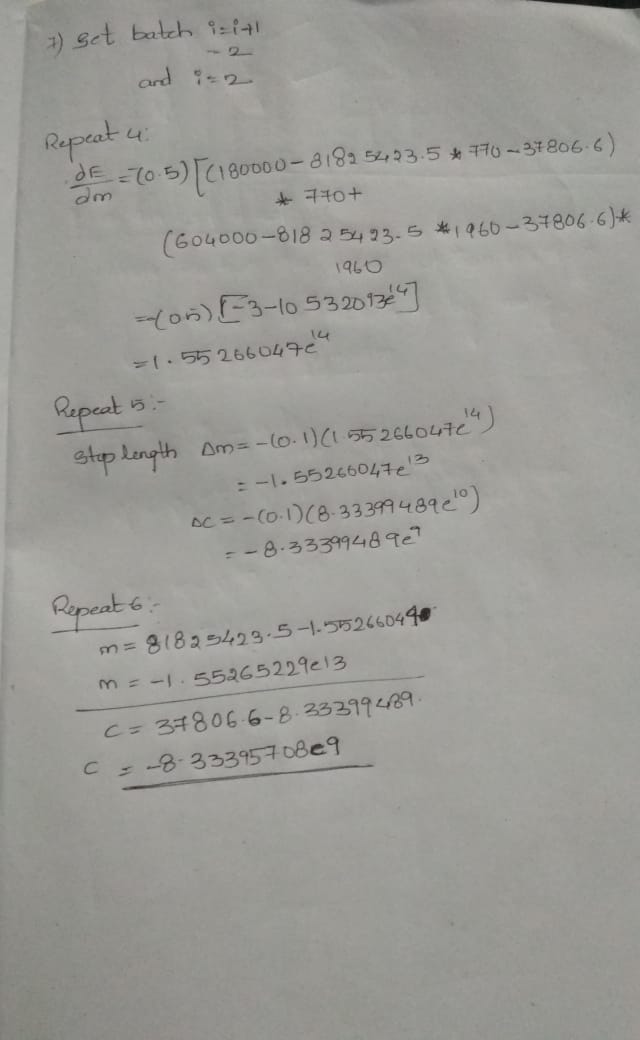 7) Set batch i=i+1
- 2
and i=2
Repeat 4:
dE/dm = -(0.5)[(180000-81825423.5*770-37806.6)
* 770+
(604000-81825423.5*1960-37806.6)*
1960
=-(0.5)[-3-10532093e14]
=1.55266047e14
Repeat 5:-
Step length Δm=-(0.1)(1.55266047e14)
= -1.55266047e13
ΔC = -(0.1)(8.33399489e10)
= -8.33399489e9
Repeat 6:-
m= 81825423.5-1.5526604
m= -1.55265229e13
C= 37806.6-8.33399489.
C = -8.33395708e9